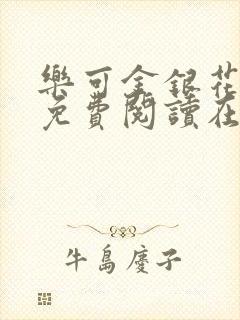 樂可金銀花
免費閱讀在
牛島慶子